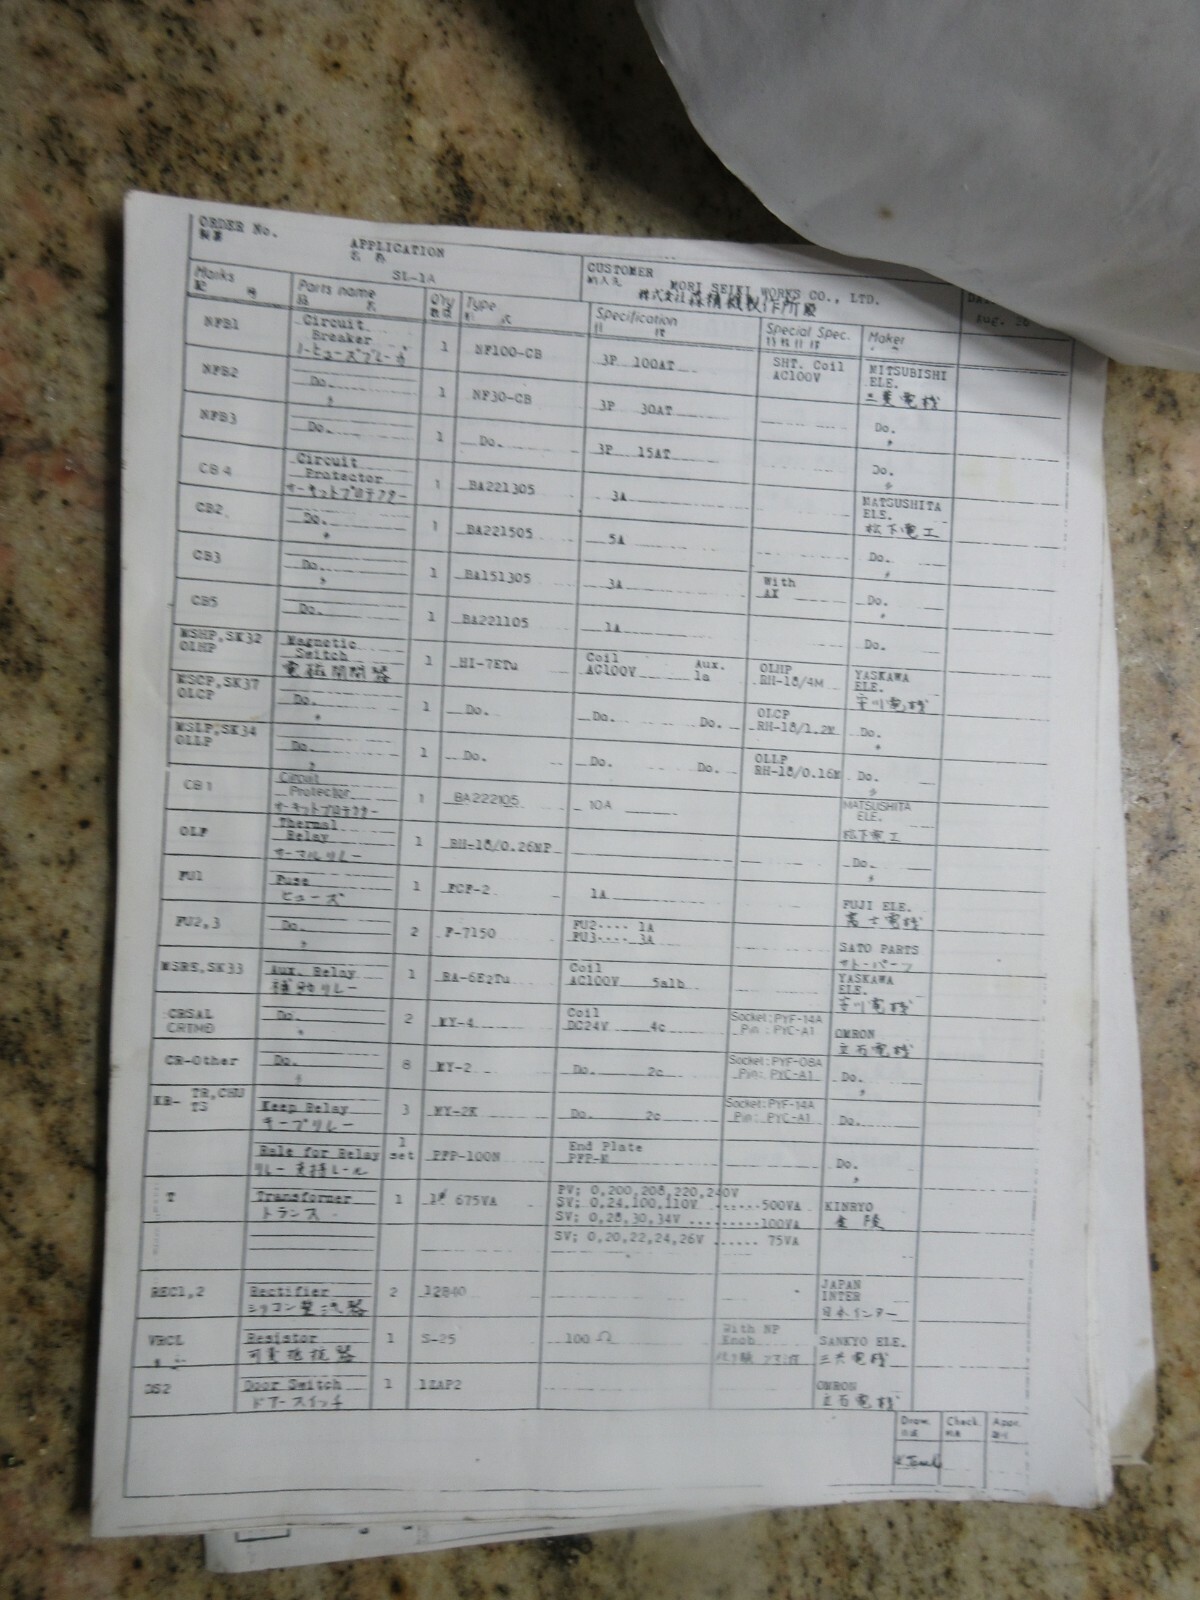 ORDER No.
APPLICATION
名 称
SL-1A
CUSTOMER
納入先
MORI SEIKI WORKS CO., LTD.
株式会社森精機製作所殿
Aug. 26
Marks
記 号
Parts name
品 名
Q'ty
数量
Type
形 式
Specification
仕 様
Special Spec.
特殊仕様
Maker
NFB1 Circuit Breaker ノーヒューズブレーカ 1 NF100-CB 3P 100AT SHT. Coil AC100V MITSUBISHI ELE. 三菱電機
NFB2 Do. 〃 1 NF30-CB 3P 30AT Do. 〃
NFB3 Do. 1 Do. 3P 15AT Do. 〃
CB4 Circuit Protector サーキットプロテクター 1 BA221305 3A MATSUSHITA ELE. 松下電工
CB2 Do. 〃 1 BA221505 5A Do. 〃
CB3 Do. 〃 1 BA151305 3A With AX Do. 〃
CB5 Do. 1 BA221105 1A Do.
MSHP,SK32 OLHP Magnetic Switch 電磁開閉器 1 HI-7ETu Coil AC100V Aux. 1a OLHP RH-18/4M YASKAWA ELE. 安川電機
MSCP,SK37 OLCP Do. 〃 1 Do. Do. Do. OLCP RH-18/1.2M Do. 〃
MSLP,SK34 OLLP Do. 〃 1 Do. Do. Do. OLLP RH-18/0.16M Do. 〃
CB1 Circuit Protector サーキットプロテクター 1 BA222105 10A MATSUSHITA ELE. 松下電工
OLP Thermal Relay サーマルリレー 1 RH-18/0.26MP Do. 〃
FU1 Fuse ヒューズ 1 FCF-2 1A FUJI ELE. 富士電機
FU2,3 Do. 〃 2 F-7150 FU2···· 1A FU3···· 3A SATO PARTS サトーパーツ
MSRS,SK33 Aux. Relay 補助リレー 1 RA-6E2Tu Coil AC100V 5a1b YASKAWA ELE. 安川電機
CRSAL CRTMD Do. 〃 2 MY-4 Coil DC24V 4c Socket:PYF-14A Pin : PYC-A1 OMRON 立石電機
CR-Other Do. 〃 8 MY-2 Do. 2c Socket:PYF-08A Pin: PYC-A1 Do. 〃
KR- TR,CHU TS Keep Relay キープリレー 3 MY-2K Do. 2c Socket:PYF-14A Pin: PYC-A1 Do.
Rale for Relay リレー支持レール 1 set PFP-100N End Plate PFP-M Do. 〃
T Transformer トランス 1 1φ 675VA PV; 0,200,208,220,240V
SV; 0,24,100,110V ······500VA KINRYO 金 陵
SV; 0,28,30,34V ·········100VA
SV; 0,20,22,24,26V ······ 75VA
REC1,2 Rectifier シリコン整流器 2 12B40 JAPAN INTER 日本インター
VRCL Resistor 可変抵抗器 1 S-25 100 Ω With NP Knob SANKYO ELE. 三共電機
DS2 Door Switch ドアースイッチ 1 1ZAP2 OMRON 立石電機
Draw. Check. Appr.